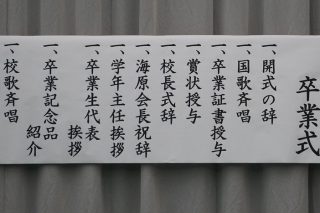 卒業式
一、開式の辞
一、国歌斉唱
一、卒業証書授与
一、賞状授与
一、校長式辞
一、海原会長祝辞
一、学年主任挨拶
一、卒業生代表
挨拶
一、卒業記念品
紹介
一、校歌斉唱